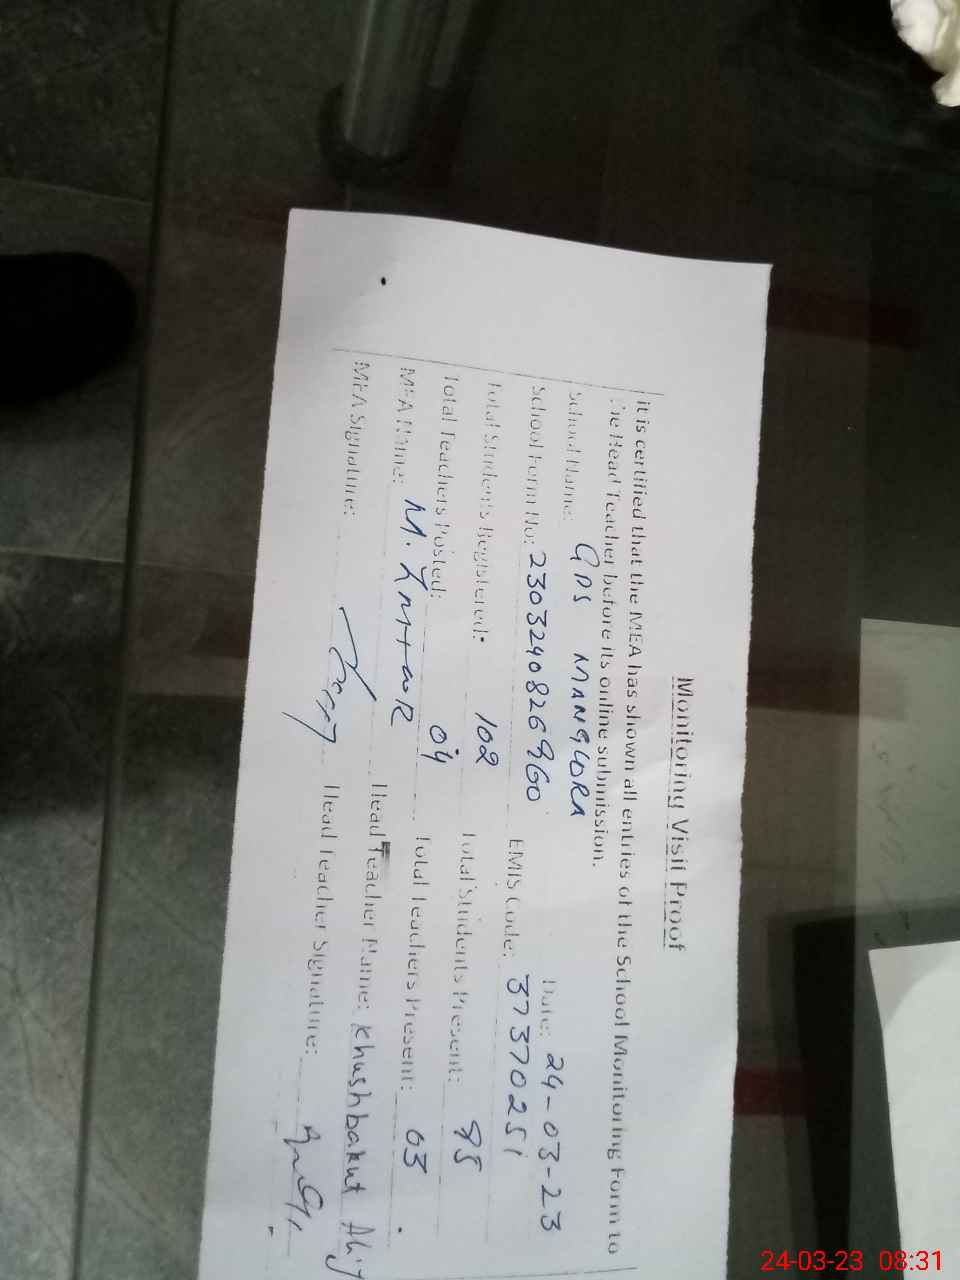 Monitoring Visit Proof
it is certified that the MEA has shown all entries of the School Monitoring Form to
the Head Teacher before its online submission.
School Name: GPS MANGWORA Date: 24-03-23
School Form No: 2303240826960 EMIS Code: 37370251
Total Students Registered: 102 Total Students Present: 95
Total Teachers Posted: 04 Total Teachers Present: 03
MEA Name: M. ZMtaR Head Teacher Name: Khushbakut
MEA Signature: Head Teacher Signature:
24-03-23 08:31